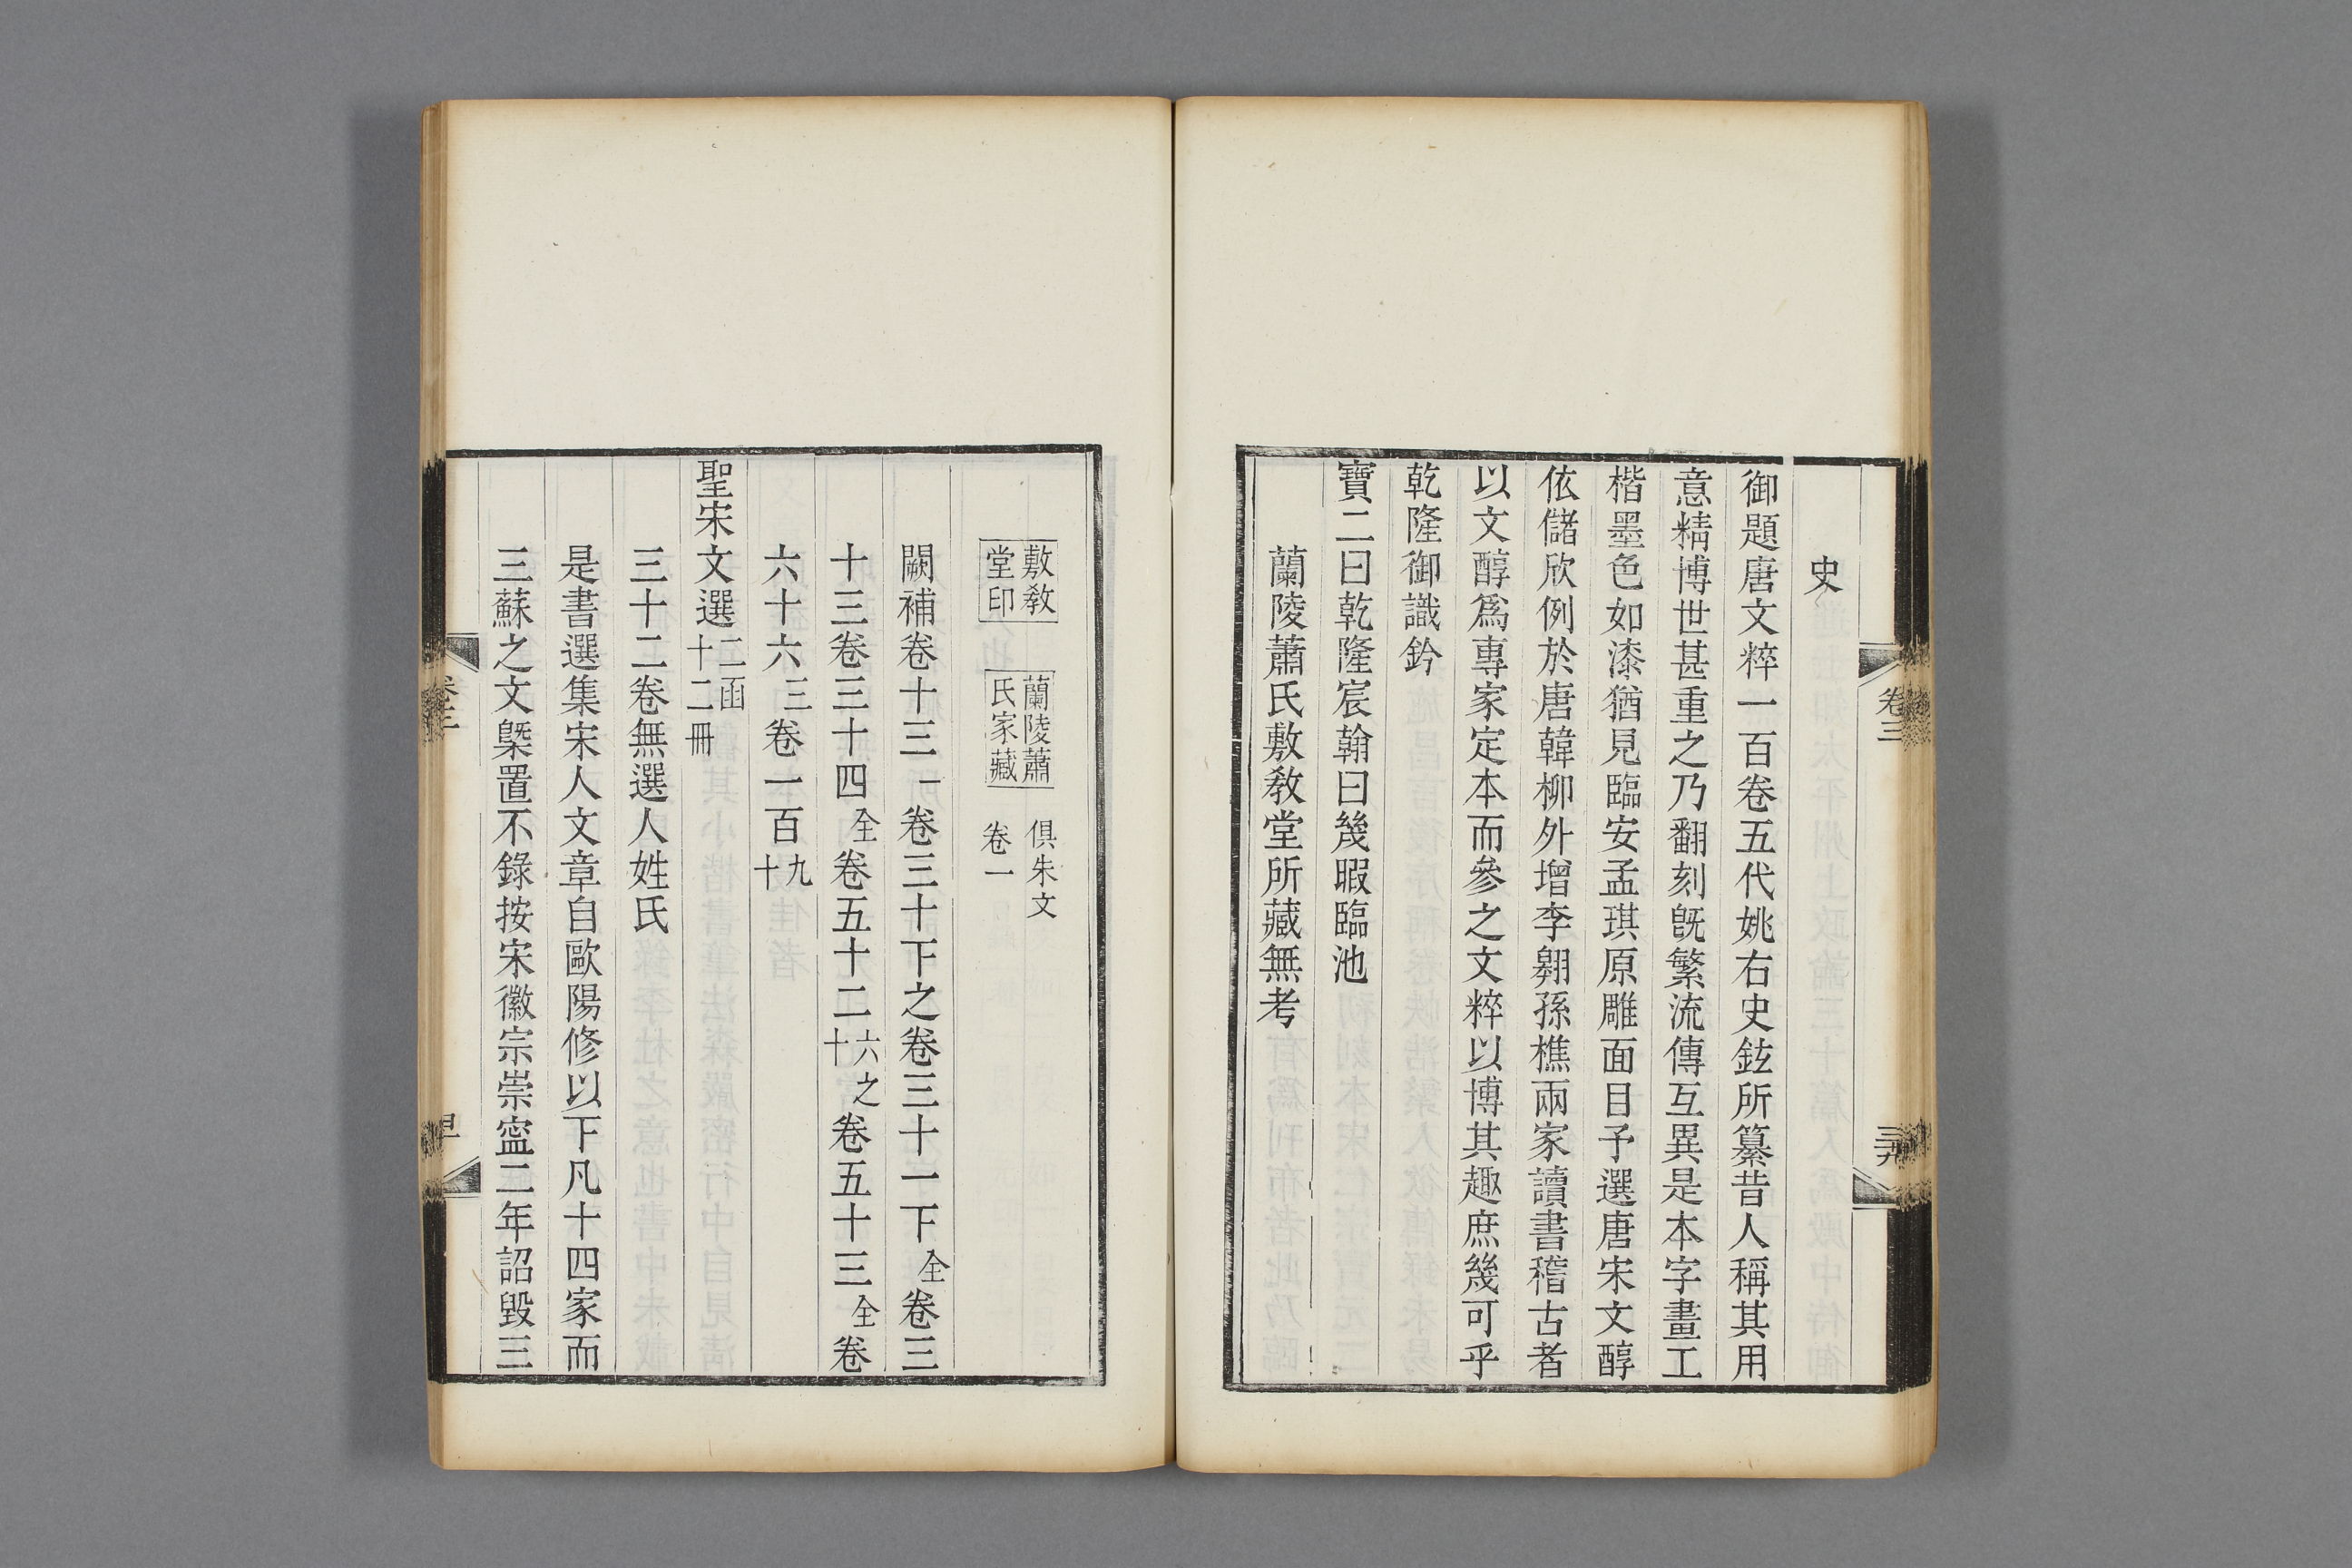 史
御題唐文粹一百卷五代姚右史鉉所纂昔人稱其用
意精博世甚重之乃翻刻旣繁流傳互異是本字畫工
楷墨色如漆猶見臨安孟琪原雕面目予選唐宋文醇
依儲欣例於唐韓柳外增李翱孫樵兩家讀書稽古者
以文醇爲專家定本而參之文粹以博其趣庶幾可乎
乾隆御識鈐
寶二曰乾隆宸翰曰幾暇臨池
蘭陵蕭氏敷敎堂所藏無考
卷三
三十九
敷敎
堂印
蘭陵蕭
氏家藏
俱朱文
卷一
闕補卷十三一卷三十下之卷三十一下全卷三
十三卷三十四全卷五十二六之十卷五十三全卷
六十六三卷一百九十
聖宋文選二函十二冊
三十二卷無選人姓氏
是書選集宋人文章自歐陽修以下凡十四家而
三蘇之文槩置不錄按宋徽宗崇寍二年詔毀三
卷三